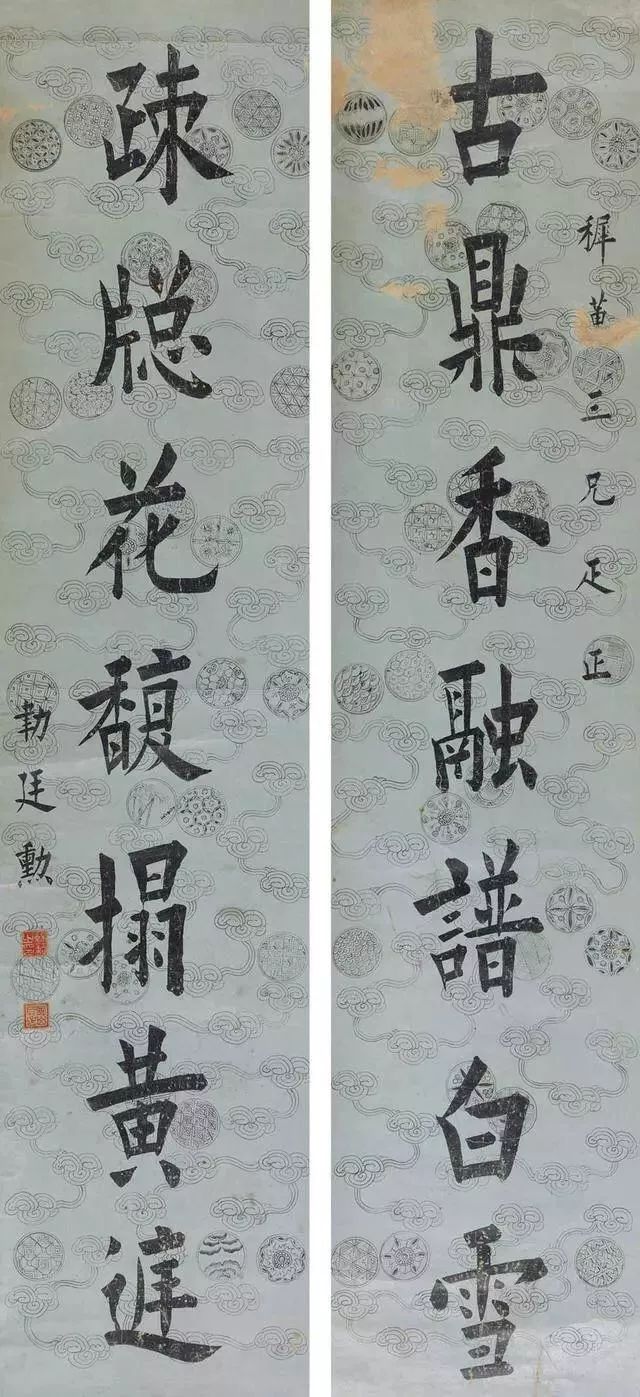 穉苗三兄疋正
古鼎香融譜白雪
疎牕花馥搨黄庭
勒廷勳